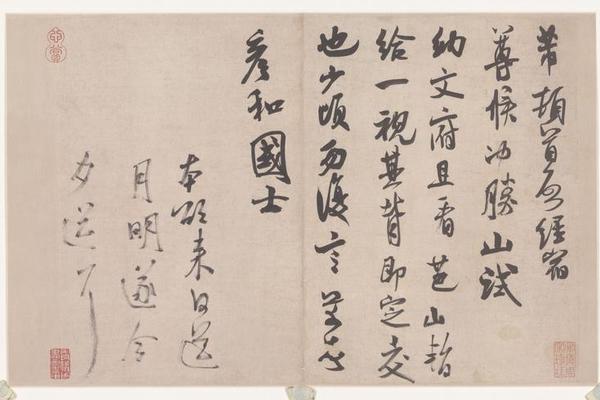 芾頓首啓經宿
尊候冲勝山試
納文府且看芭山暫
給一視其背即定交
也少頃勿復言芾頓首
彦和國士
本欲來日送
月明遂今
夕送耳